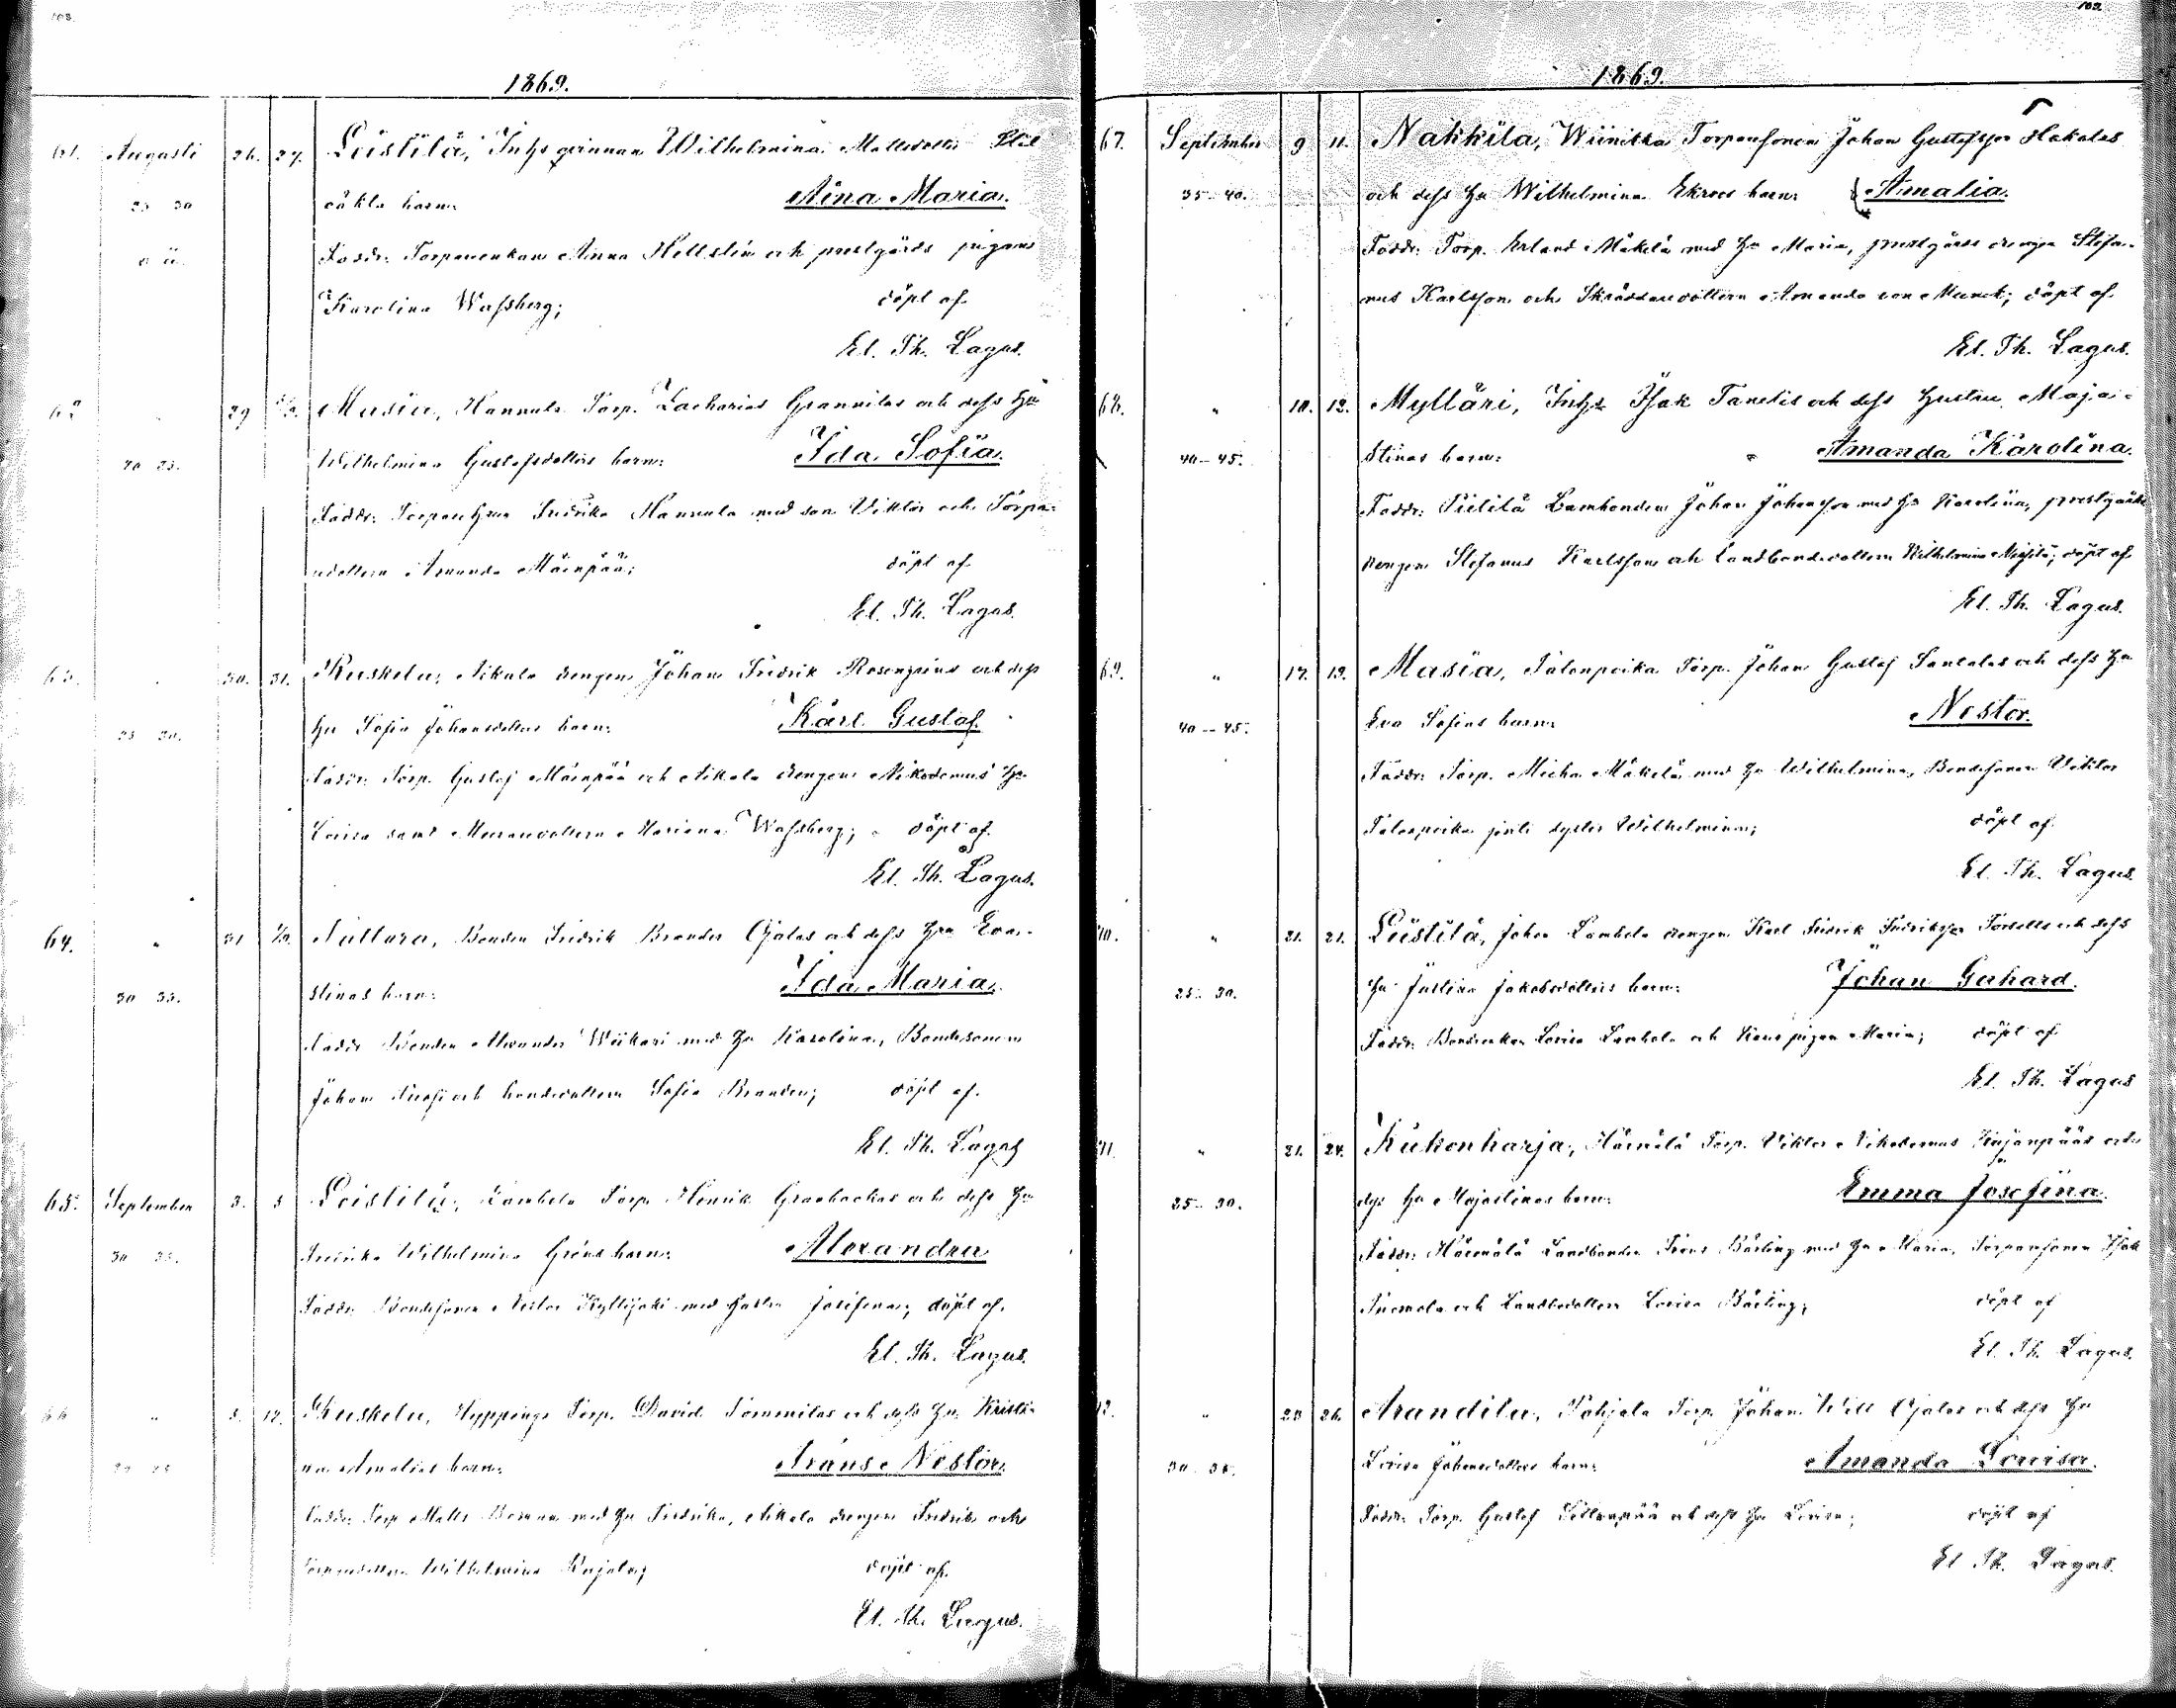 108.
1869.
61. Augusti 26. 27. Leistilä, Inhs qvinnan Wilhelmina Mattsdotters
25 30 oäkta barn: Aina Maria.
o ä. Faddr: Torpareenkan Anna Hellstén och prestgårds pigan
Karolina Wassberg; döpt af
El. Th. Lagus.
62 29 Masia, Hannula Torp. Zacharias Granvilas och dess Hu
20 25. Wilhelmina Gustafsdotters barn: Ida Sofia.
Faddr: Torpare Hun Fredrika Hannula med son Viktor och Torpa-
redottern Amanda Mäenpää; döpt af
El. Th. Lagus.
63. 30. 31. Ruskela, Nikula drengen Johan Fredrik Rosengrens och dess
25 30. Hu Sofia Johansdotters barn: Karl Gustaf.
Faddr: Torp. Gustaf Mäenpää och Nikula drengen Nikodemus Hu
Lovisa samt Muraredottern Mariana Wassberg; döpt af
El. Th. Lagus.
64. " 31 1/9. Tattara, Bonden Fredrik Brander Ojalas och dess Hu Eva-
30 35. Stinas barn: Ida Maria.
Faddr Bonden Wiikari med Hu Karolina, Bondesonen
Johan och bondedottern Sofia Brander; döpt af
El. Th. Lagus
65. September 3. 5 Leistilä, Lambela Torp. Henrik Granbackas och dess Hu
30 35. Fredrika Wilhelmina Gréns barn: Alexandra
Faddr: Bondesonen Nestor Kyllijoki med Hustru Josefina; döpt af
El. Th. Lagus.
66 " 5. 12. Ruskela, Hyppings Torp. David Tommilas och dess Hu Kristi-
na Amalias barn: Frans Nestor.
Faddr: Torp Matts Boman med Hu Fredrika, Nikula drengen Fredrik och
Torparedottern Wilhelmina Rajala; döpt af
El. Th. Lagus.
109.
1869.
67. September 9 11. Nakkila, Wiinikka Torparesonen Johan Gustafsson Hakalas
35-40. och dess Hu Wilhelmina Ekroos barn: Amalia.
Faddr: Torp. Erland Mäkelä med Hu Maria, prestgårds drengen Stefa-
nus Karlsson och Skräddaredottern Amanda von Munck; döpt af
El. Th. Lagus.
68. " 10. 12. Mylläri, Inhs Isak Tanelis och dess Hustru Maja-
40-45. Stinas barn: Amanda Karolina.
Faddr: Pietilä Lambonden Johan Johansson med Hu Karolina, prestgårds
drengen Stefanus Karlsson och Landbondedottern Wilhelmina; döpt af
El. Th. Lagus.
69. " 17. 19. Masia, Talonpoika Torp. Johan Gustaf Santalas och dess Hu
40-45. Eva Sofias barn: Nestor.
Faddr: Torp. Micha Mäkelä med Hu Wilhelmina, Bondesonen Viktor
Talonpoika jemte syster Wilhelmina; döpt af
El. Th. Lagus.
70. " 21. 21. Leistilä, Johan Lambela drengen Karl Fredrik Fredriksson och dess
25-30. Hu Justina Jakobsdotters barn: Johan Gerhard.
Faddr: Bondeenkan Lovisa Lambela och pigan Maria; döpt af
El. Th. Lagus
71. " 21. 24. Kukonharja, Härmälä Torp. Viktor Nikodemus Kujanpääs och
25-30. dess Hu Majastinas barn: Emma Josefina.
Faddr: Härmälä Landbonden Frans Bärling med Hu Maria, Torparesonen Isak
Tuomola och Landbodottern Lovisa Bärling; döpt af
El. Th. Lagus.
72. " 23 26. Arandila, Pohjala Torp. Johan Will Ojalas och dess Hu
30-35. Lovisa Johansdotters barn: Amanda Lovisa.
Faddr: Torp. Gustaf Sillanpää och dess Hu Lovisa; döpt af
El. Th. Lagus.